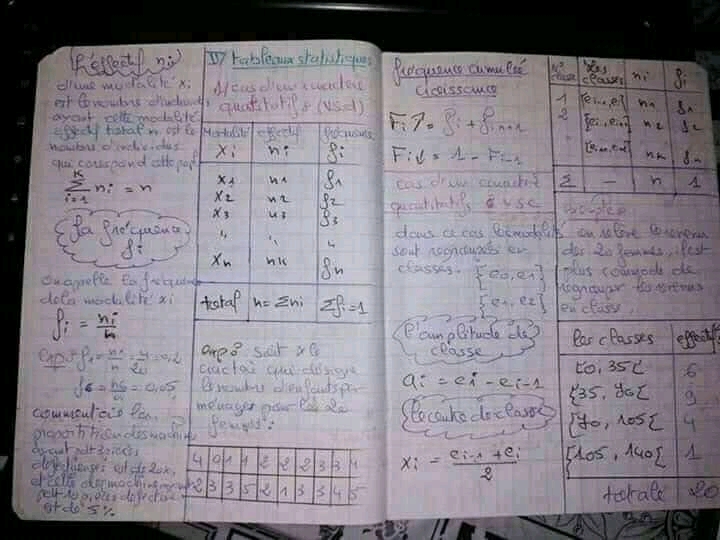 L'éffectif ni
d'une modalité xi
est le nombre d'individus
ayant cette modalité
effectif total n est le
nombre d'individus
qui corespond
K
Σ ni = n
i=1
La fréquence
fi
on appelle la fréquence
de la modalité xi
fi = ni/n
f1 = n1/n = 4/20 = 0,2
f6 = n6/n = 0,05
commentaire
proportition des machines
ayant
défectueuses est de 20%
et celle des machines ayant
est de 5%
II/ tableaux statistiques
1/ cas d'un caractère
quatitatifs (V.S.d)
Modalité effectif fréquence
xi ni fi
x1 n1 f1
x2 n2 f2
x3 n3 f3
" " "
xn nk fn
total n = Σni Σfi = 1
exp: soit x le
caractère qui désigne
le nombre d'enfants par
ménages pour les 20
femmes:
4 0 1 1 2 2 2 3 3 1
2 3 3 5 2 1 3 3 4 5
fréquence cumulée
croissance
Fi↑ = fi + fi+1
Fi↓ = 1 - Fi-1
cas d'un caractère
quantitatifs VSC
dans ce cas les modalités
sont regroupées en
classes. [e0, e1[
[e1, e2[
L'amplitude de
classe
ai = ei - ei-1
le centre de classe
xi = (ei-1 + ei)/2
N° classe Les classes ni fi
1 [e0, e1[ n1 f1
2 [ei, ei+1[ n2 f2
nk fn
Σ - n 1
exemple
on relève le revenu
des 20 femmes, il est
plus commode de
regrouper les revenus
en classe.
les classes effectifs
[0, 35[ 6
[35, 70[ 9
[70, 105[ 4
[105, 140[ 1
totale 20